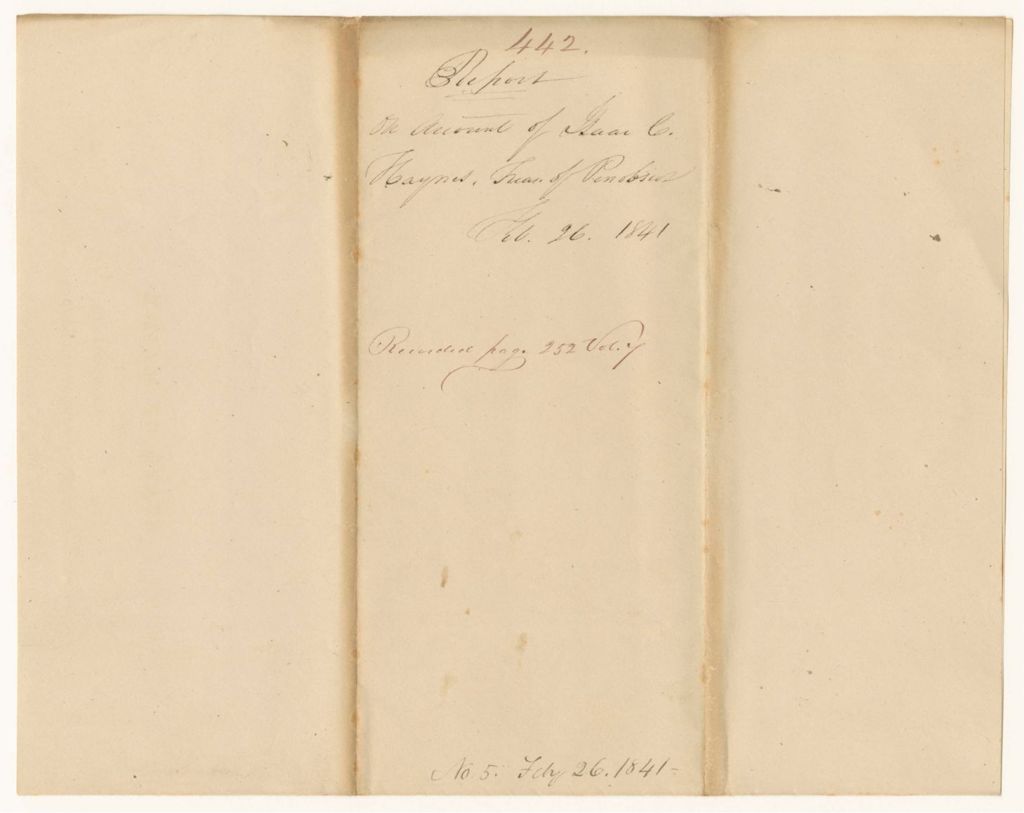 442.
Report
On Account of Isaac C.
Haynes, Treas. of Penobscot
Feb. 26. 1841
Recorded page 252 Vol. 7
No 5. Feby 26. 1841-